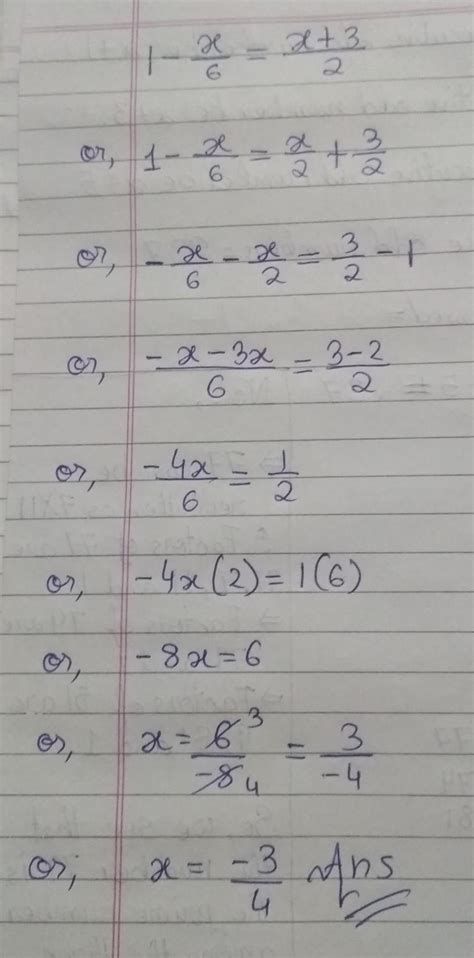 1 - x/6 = (x+3)/2
or, 1 - x/6 = x/2 + 3/2
or, -x/6 - x/2 = 3/2 - 1
or, (-x-3x)/6 = (3-2)/2
or, -4x/6 = 1/2
or, -4x(2) = 1(6)
or, -8x = 6
or, x = 6 3/-8 4 = 3/-4
or, x = -3/4 Ans